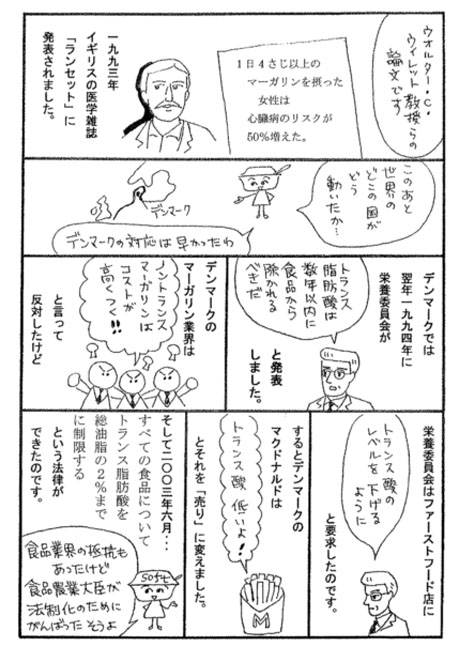 ウォルター・C・
ウィレット教授らの
論文です
1日4さじ以上の
マーガリンを摂った
女性は
心臓病のリスクが
50%増えた。
一九九三年
イギリスの医学雑誌
「ランセット」に
発表されました。
このあと
世界の
どこの国が
どう
動いたか…
デンマーク
デンマークの対応は早かったわ
デンマークでは
翌年一九九四年に
栄養委員会が
トランス
脂肪酸は
数年以内に
食品から
除かれる
べきだ
と発表
しました。
デンマークの
マーガリン業界は
ノントランス
マーガリンは
コストが
高くつく!!
と言って
反対したけど
栄養委員会はファーストフード店に
トランス酸の
レベルを下げる
ように
と要求したのです。
するとデンマークの
マクドナルドは
トランス酸 低いよ!
M
とそれを「売り」に変えました。
そして二〇〇三年六月…
すべての食品について
トランス脂肪酸を
総油脂の2%まで
に制限する
という法律が
できたのです。
食品業界の抵抗も
あったけど
食品農業大臣が
法制化のために
がんばったそうよ